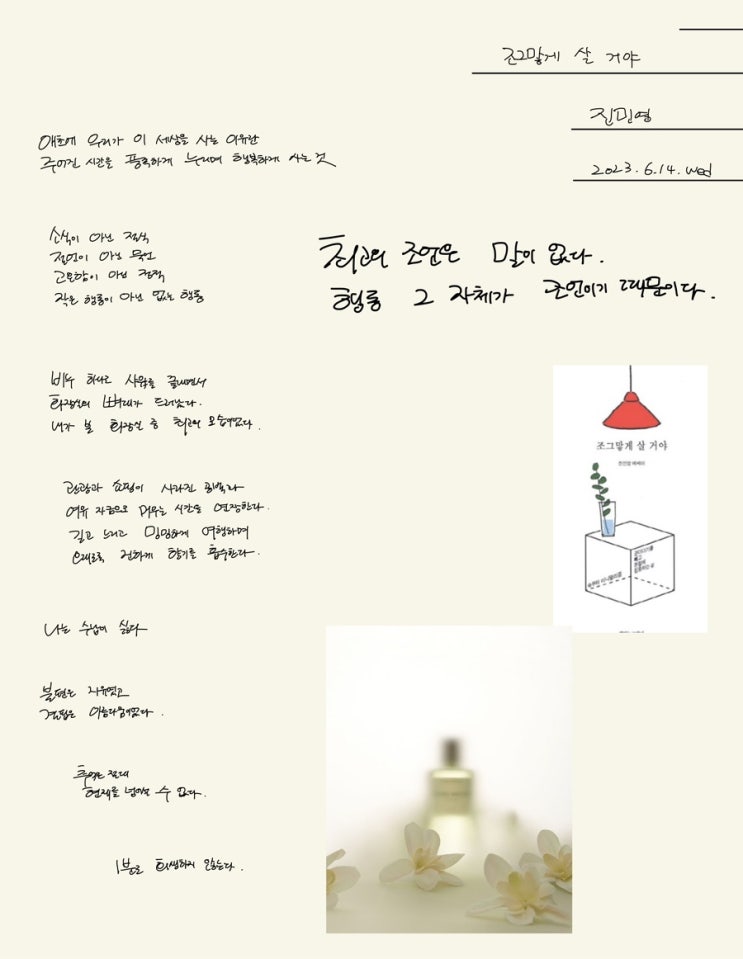 조그맣게 살 거야
진민영
2023.6.14.wed
애초에 우리가 이 세상을 사는 이유란
주어진 시간을 풍족하게 누리며 행복하게 사는 것
소식이 아닌 절식
절언이 아닌 묵언
고요함이 아닌 정적
작은 행동이 아닌 없는 행동
최고의 조언은 말이 없다.
행동 그 자체가 조언이기 때문이다.
비누 하나로 샤워를 끝내면서
화장실의 뼈대가 드러났다.
내가 본 화장실 중 최고의 모습이었다.
관광과 쇼핑이 사라진 공백과
여유 자금으로 머무는 시간을 연장한다.
길고 느리고 밍밍하게 여행하며
오래도록 진하게 향기를 흡수한다.
조그맣게 살 거야
진민영 에세이
나는 수납이 싫다
불편은 자유였고
결핍은 아름다움이었다.
추억은 절대
현재를 넘어설 수 없다.
1분도 희생하지 않는다.